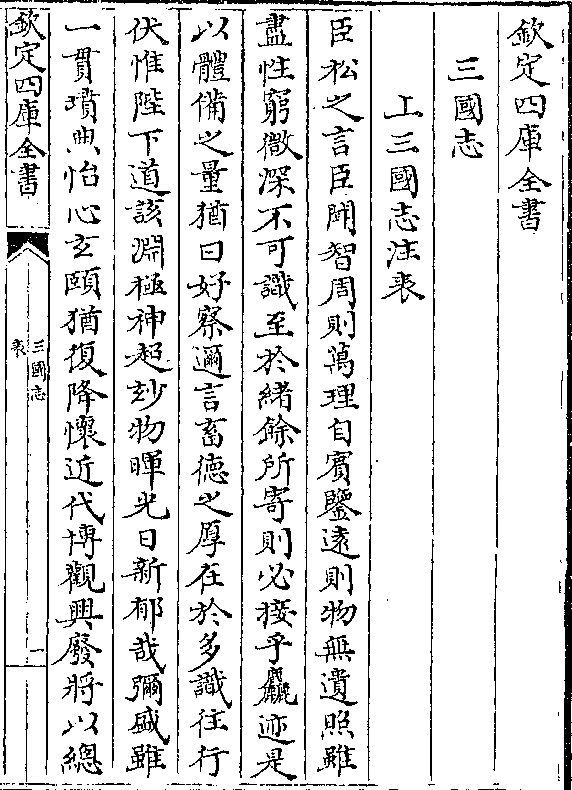 欽定四庫全書
三國志
上三國志注表
臣松之言臣聞智周則萬理自賓鑒遠則物無遺照雖
盡性窮微深不可識至於緒餘所寄則必接乎麤迹是
以體備之量猶曰好察邇言畜德之厚在於多識往行
伏惟陛下道該淵極神超玅物暉光日新郁哉彌盛雖
一貫墳典怡心玄賾猶復降懷近代博觀興廢將以總
欽定四庫全書
三國志
表
一